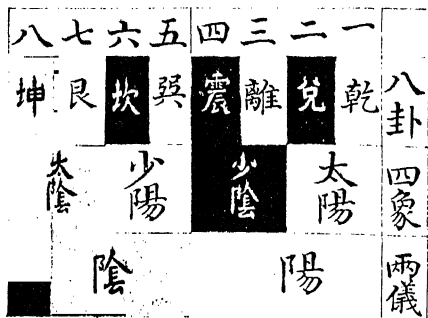 八七六五四三二一
坤艮坎巽震離兌乾 八卦
太陰 少陽 少陰 太陽 四象
陰 陽 兩儀